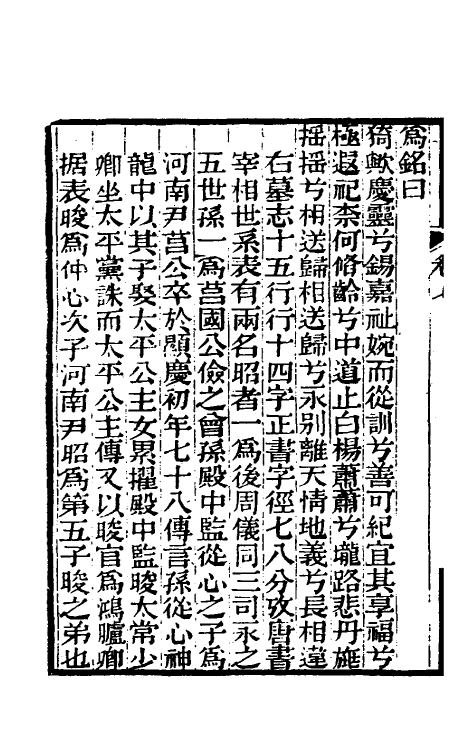 爲銘曰
猗歟慶靈兮錫嘉祉婉而從訓兮善可紀宜其享福兮
極遐祀柰何脩齡兮中道止白楊蕭蕭兮壠路悲丹旐
搖搖兮相送歸相送歸兮永别離天情地義兮長相違
右墓志十五行行十四字正書字徑七八分攷唐書
宰相世系表有兩名昭者一爲後周儀同三司永之
五世孫一爲莒國公儉之曾孫殿中監從心之子爲
河南尹莒公卒於顯慶初年七十八傳言孫從心神
龍中以其子娶太平公主女累擢殿中監晙太常少
卿坐太平黨誅而太平公主傳又以晙官爲鴻臚卿
据表晙爲仲心次子河南尹昭爲第五子晙之弟也
卷七